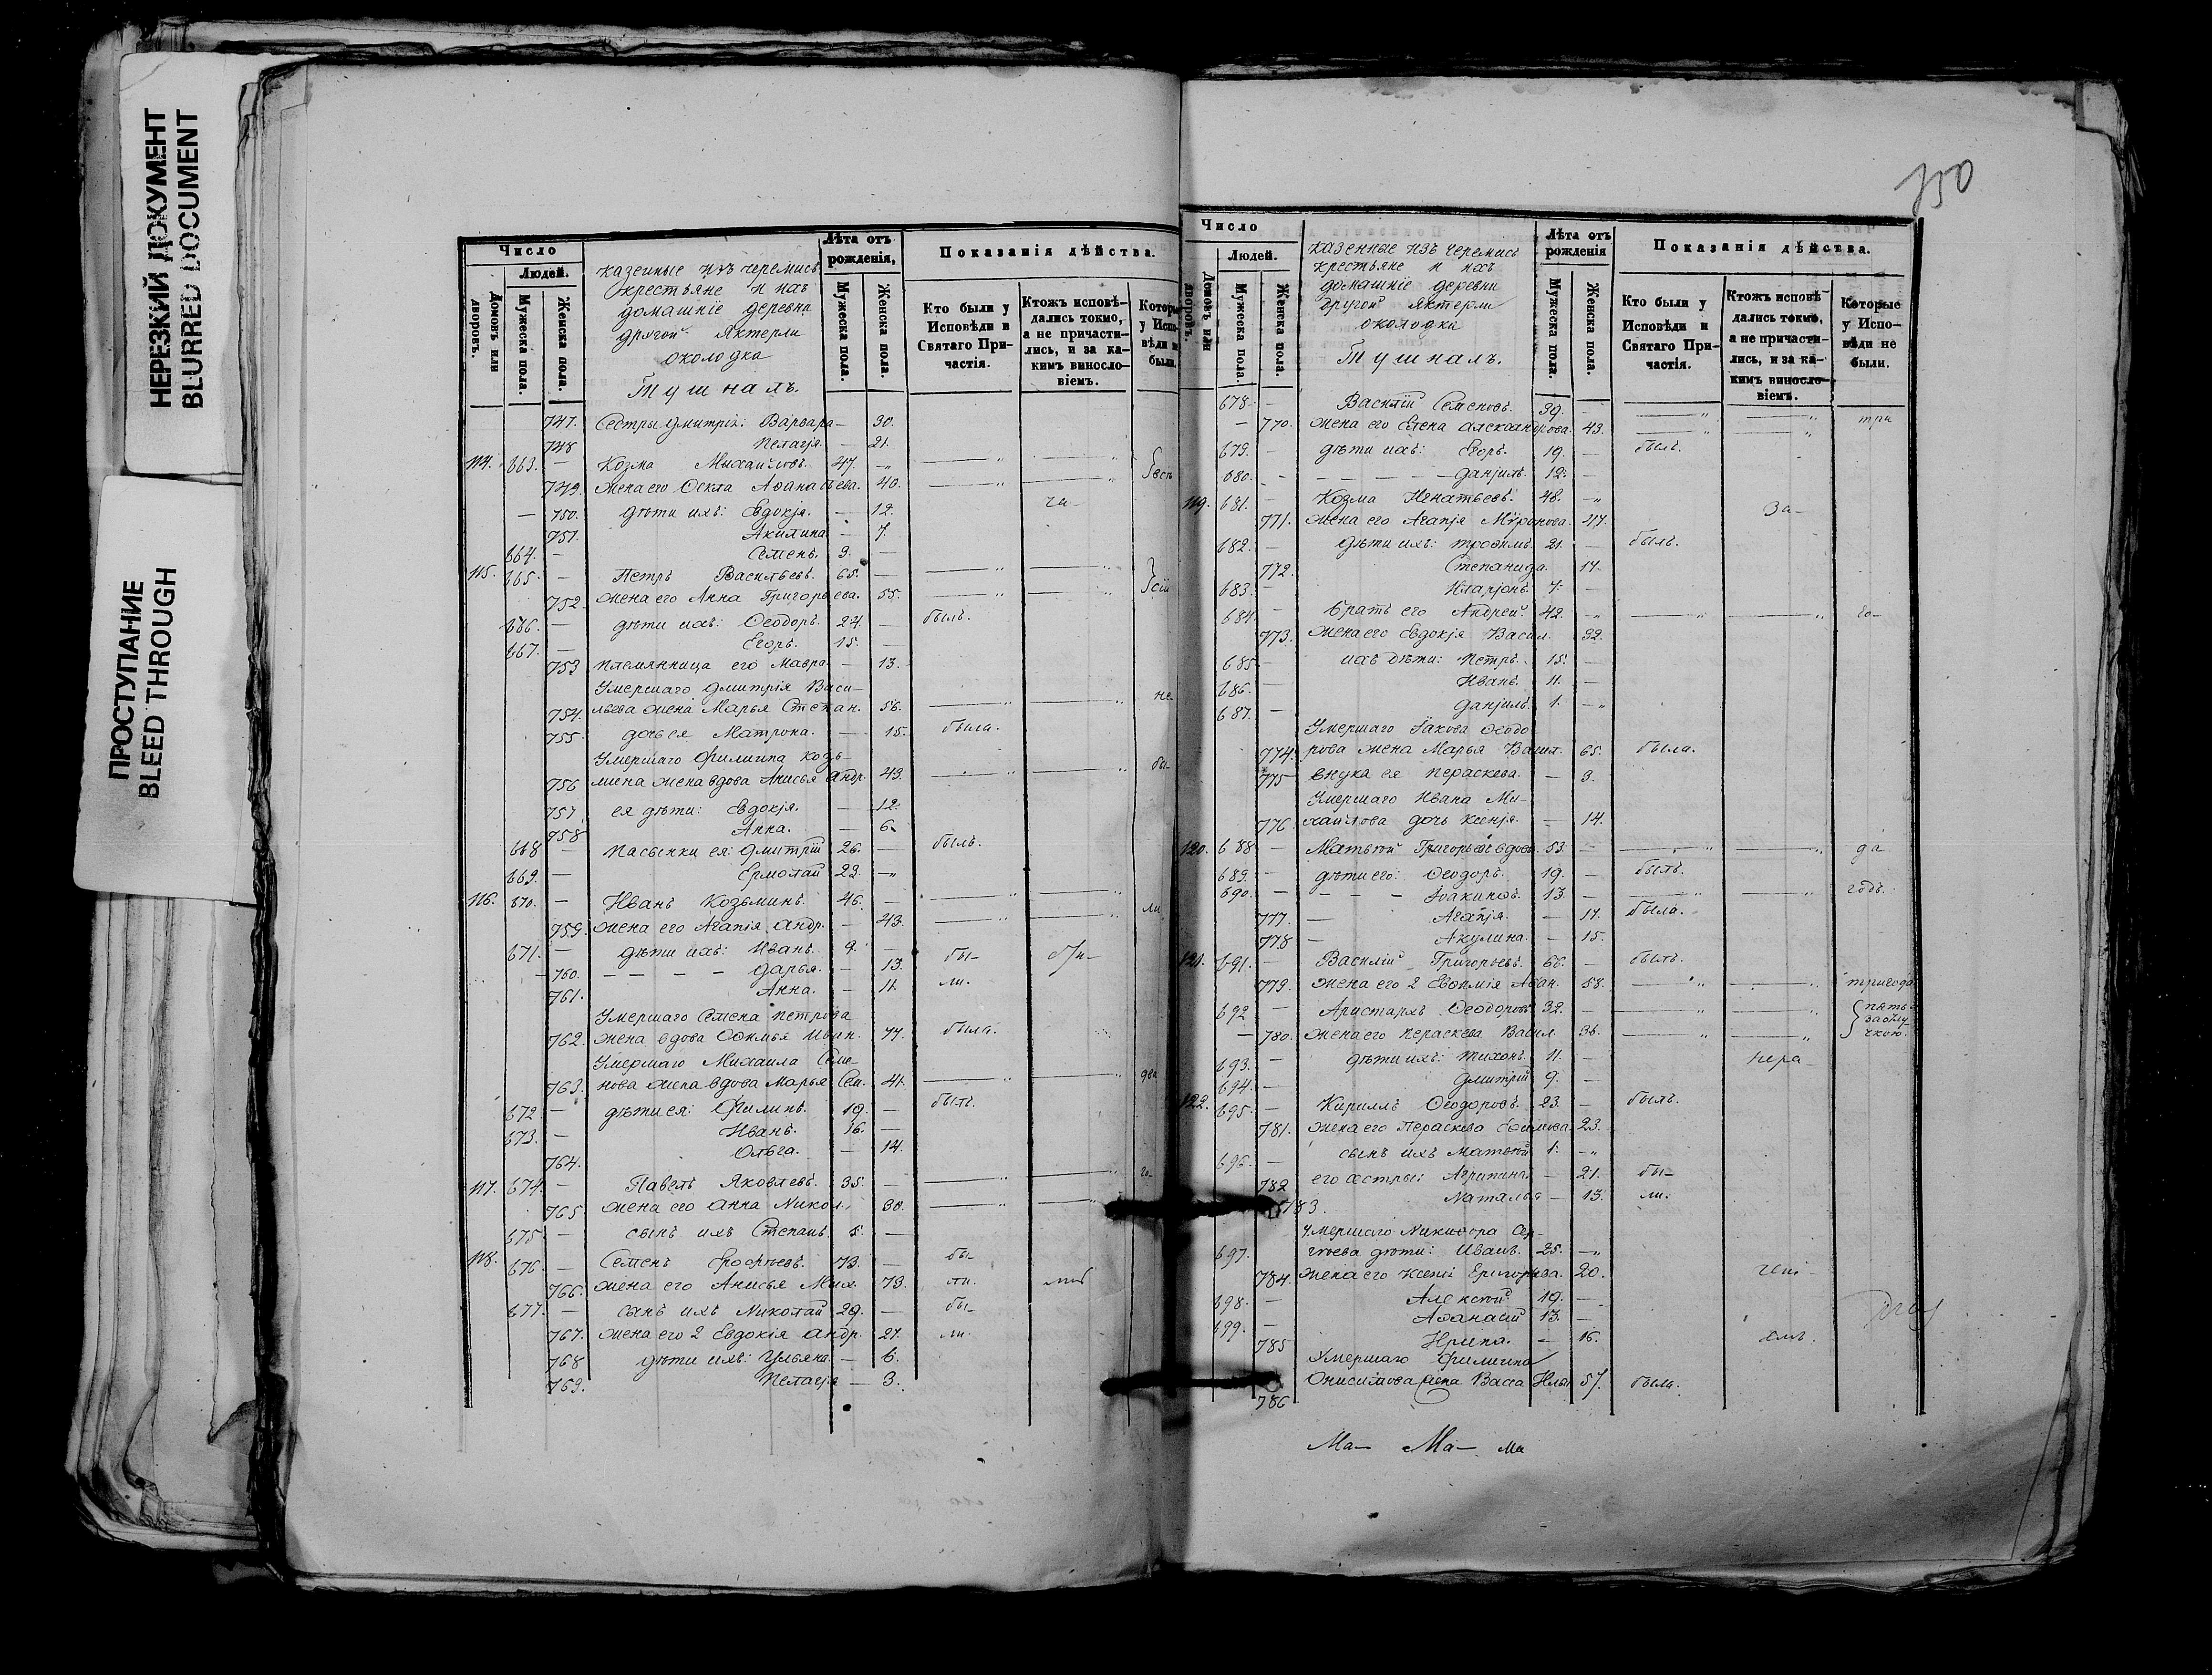 НЕРЕЗКИЙ ДОКУМЕНТ
BLURRED DOCUMENT
ПРОСТУПАНИЕ
BLEED THROUGH
Число
Людей.
Домовъ или дворовъ.
Мужеска пола.
Женска пола.
казенные изъ черемисъ
крестьяне и ихъ
домашніе деревни
другой Яктерли
околодка
Тушналъ.
Лѣта отъ рожденія,
Мужеска пола.
Женска пола.
Показанія дѣйства.
Кто были у Исповѣди и Святаго Причастія.
Ктожъ исповѣдались токмо, а не причастились, и за какимъ винословіемъ.
747. Сестры Дмитрія: Варвара — 30.
748 Пелагія — 21.
114. 663. — Козма Михайловъ. 47. —„
749. жена его Ѳекла Аѳанасьева. 40.
— 750. дѣти ихъ: Евдокія. — 12.
751. Акилина — 7.
664. — Семенъ. 3. —
115. 665. — Петръ Васильевъ. 65. —
752. жена его Анна Григорьева. 55.
666. — дѣти ихъ: Ѳеодоръ. 24 — былъ.
667. — Егоръ. 15. —
753 племянница его Мавра. — 13.
Умершаго Дмитрія Васи-
754. льева жена Марья Степан. 56. не-
755. дочь ея Матрона. — 15. была.
Умершаго Филиппа Козь-
756 мина жена вдова Анисья Андр. 43. бы-
757 ея дѣти: Евдокія. — 12.
758 Анна. — 6.
668 — пасынки ея: Дмитрій 26. — былъ.
669. — Ермолай 23. —„
116. 670. — Иванъ Козьминъ. 46. —
759. жена его Агапія Андр. — 43. ли
671. — дѣти ихъ: Иванъ. 9. — бы-
— 760. — — — — Дарья. — 13. ли.
761. Анна. — 11.
Умершаго Семена Петрова
762. жена вдова Ѳѳимья Иван. 77. была.
Умершаго Михаила Семе-
763. нова жена вдова Марья Сем. 41. два
672. — дѣти ея: Филипъ. 19. — былъ.
673. — Иванъ. 16. —
764. Ольга. — 14.
117. 674. — Павелъ Яковлевъ. 35. — го-
765. жена его Анна Никол. 30.
675. — сынъ ихъ Степанъ. 5. —
118. 676. — Семенъ Ерофѣевъ. 73. — бы-
766. жена его Анисья Мих. 73. ли.
677. — сынъ ихъ Николай 29. — бы-
767. жена его 2 Евдокія Андр. 27. ли.
768 дѣти ихъ: Ульяна. — 6.
769. Пелагія — 3.
750
Число
Людей.
Домовъ или дворовъ.
Мужеска пола.
Женска пола.
казенные изъ черемисъ
крестьяне и ихъ
домашніе деревни
другой Яктерли
околодка
Тушналъ.
Лѣта отъ рожденія
Мужеска пола.
Женска пола.
Показанія дѣйства.
Кто были у Исповѣди и Святаго Причастія.
Ктожъ исповѣдались токмо, а не причастились, и за какимъ винословіемъ.
Которые у Исповѣди не были.
678. — Василій Семеновъ. 39. — три
— 770. жена его Елена Александрова. 43.
679. — дѣти ихъ: Егоръ. 19. — былъ.
680. — — — — — Даніилъ. 12. —
119. 681. — Козма Игнатьевъ. 48. —„ За-
771. жена его Агапія Мѵронова. 47.
682. — дѣти ихъ: Трофимъ. 21. — былъ.
772. Степанида. 17.
683. — Иларіонъ. 7. —
684 — братъ его Андрей 42. —„ го-
773. жена его Евдокія Васил. 32.
685 — ихъ дѣти: Петръ. 15. —
686. — Иванъ. 11. —
687. — Даніилъ. 1. —„
Умершаго Іакова Ѳеодо
774. рова жена Марья Васил. 65. была.
775 внука ея Пераскева. — 3.
Умершаго Ивана Ми-
776. хайлова дочь Ксенія. — 14.
120. 688 — Матѳей Григорьевъ вдовъ. 53. — да
689. — дѣти его: Ѳеодоръ. 19. — былъ.
690. — — — Іоакимъ. 13. —
777. — Агапія. — 17. была.
778 — Акулина. — 15.
121. 691. — Василій Григорьевъ. 66. — былъ.
779. жена его 2 Евѳимія Аѳан. 58. тригода
692 — Аристархъ Ѳеодоровъ 32. —
— 780. жена его Пераскева Васил. 36.
693. — дѣти ихъ: Тихонъ. 11. — Нера-
694. — Дмитрій 9. —
122. 695. — Кириллъ Ѳеодоровъ. 23. — былъ.
781. жена его Пераскева Ефимова. 23.
696. — сынъ ихъ Матѳей 1. —„
782 его сестры: Агрипина. — 21. бы-
783. Наталья — 13. ли.
Умершаго Никифора Сер-
697. гѣева дѣти: Иванъ. 25. —„
784. жена его Ксенія Григорьева. 20.
698. — Алексѣй 19. —
699. — Аѳанасій 13. —
785 Ирина. — 16.
Умершаго Филиппа
786 Онисимова жена Васса Ильи. 57. была.
Ма— Ма— Ма